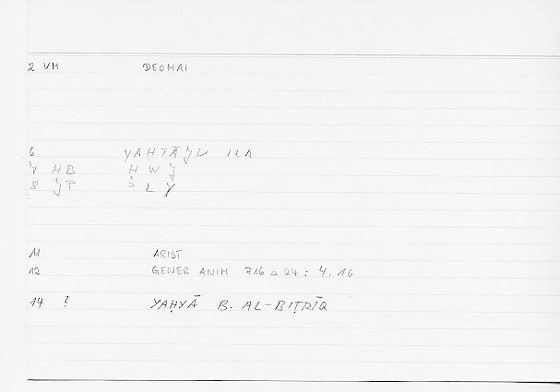 2 VM DEOMAI
6 YAḤTĀǦU ILA
7 HB ḤWǦ
8 ǦP ŠLY
11 ARIST
12 GENER ANIM 716 a 24 : 4, 16
14 ? YAḤYĀ B. AL-BIṬRĪQ